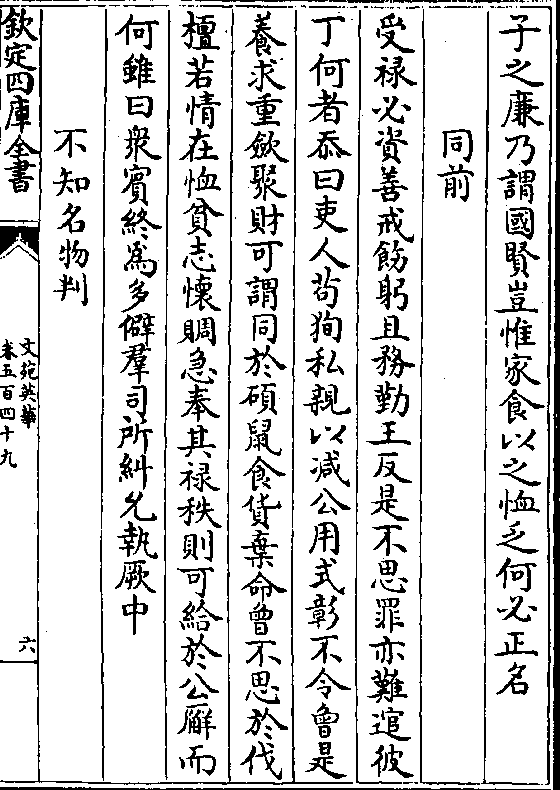 子之廉乃謂國賢豈惟家食以之恤乏何必正名
同前
受禄必資善戒飭躬且務勤王反是不思罪亦難逭彼
丁何者忝曰吏人茍狥私親以减公用式彰不令曾是
養求重斂聚財可謂同於碩鼠食貨棄命曾不思於伐
檀若情在恤貧志懷賙急奉其禄秩則可給於公廨而
何雖曰衆賓終為多僻羣司所糾允執厥中
不知名物判
欽定四庫全書
文苑英華
卷五百四十九
六